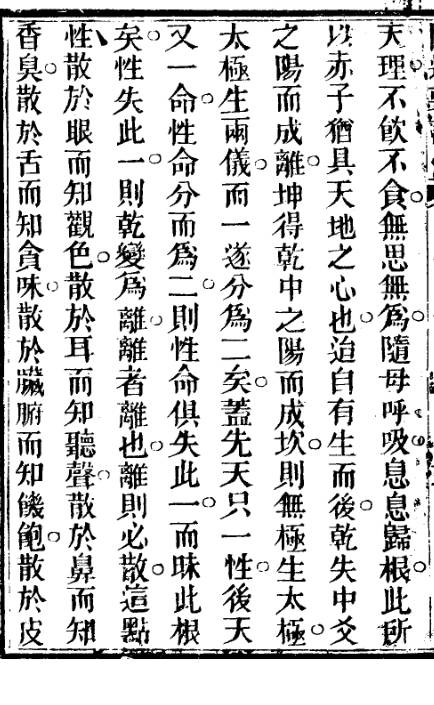 天理不飲不食。無思無為。隨母呼吸息息歸根。此所
以赤子猶具天地之心也。迨自有生而後。乾失中爻
之陽而成離。坤得乾中之陽而成坎。則無極生太極。
太極生兩儀。而一遂分為二矣。蓋先天只一性。後天
又一命。性命分而爲二。則性命俱失此一。而昧此根
矣。性失此一。則乾變爲離。離者離也。離則必散。這點
性散於眼而知觀色。散於耳而知聽聲。散於鼻而知
香臭。散於舌而知貪味。散於臟腑而知饑飽。散於皮